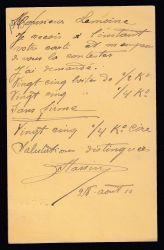 Monsieur Lemoine
Je reçois à l'instant
votre carte et m'empresse
de vous la contester
j'ai demandé.
Vingt cinq boites de 1/2 Ko
Vingt cinq " 1/4 Ko
Sans prime
Vingt cinq 1/4 Ko Cire
Salutations distinguées
28 août 10